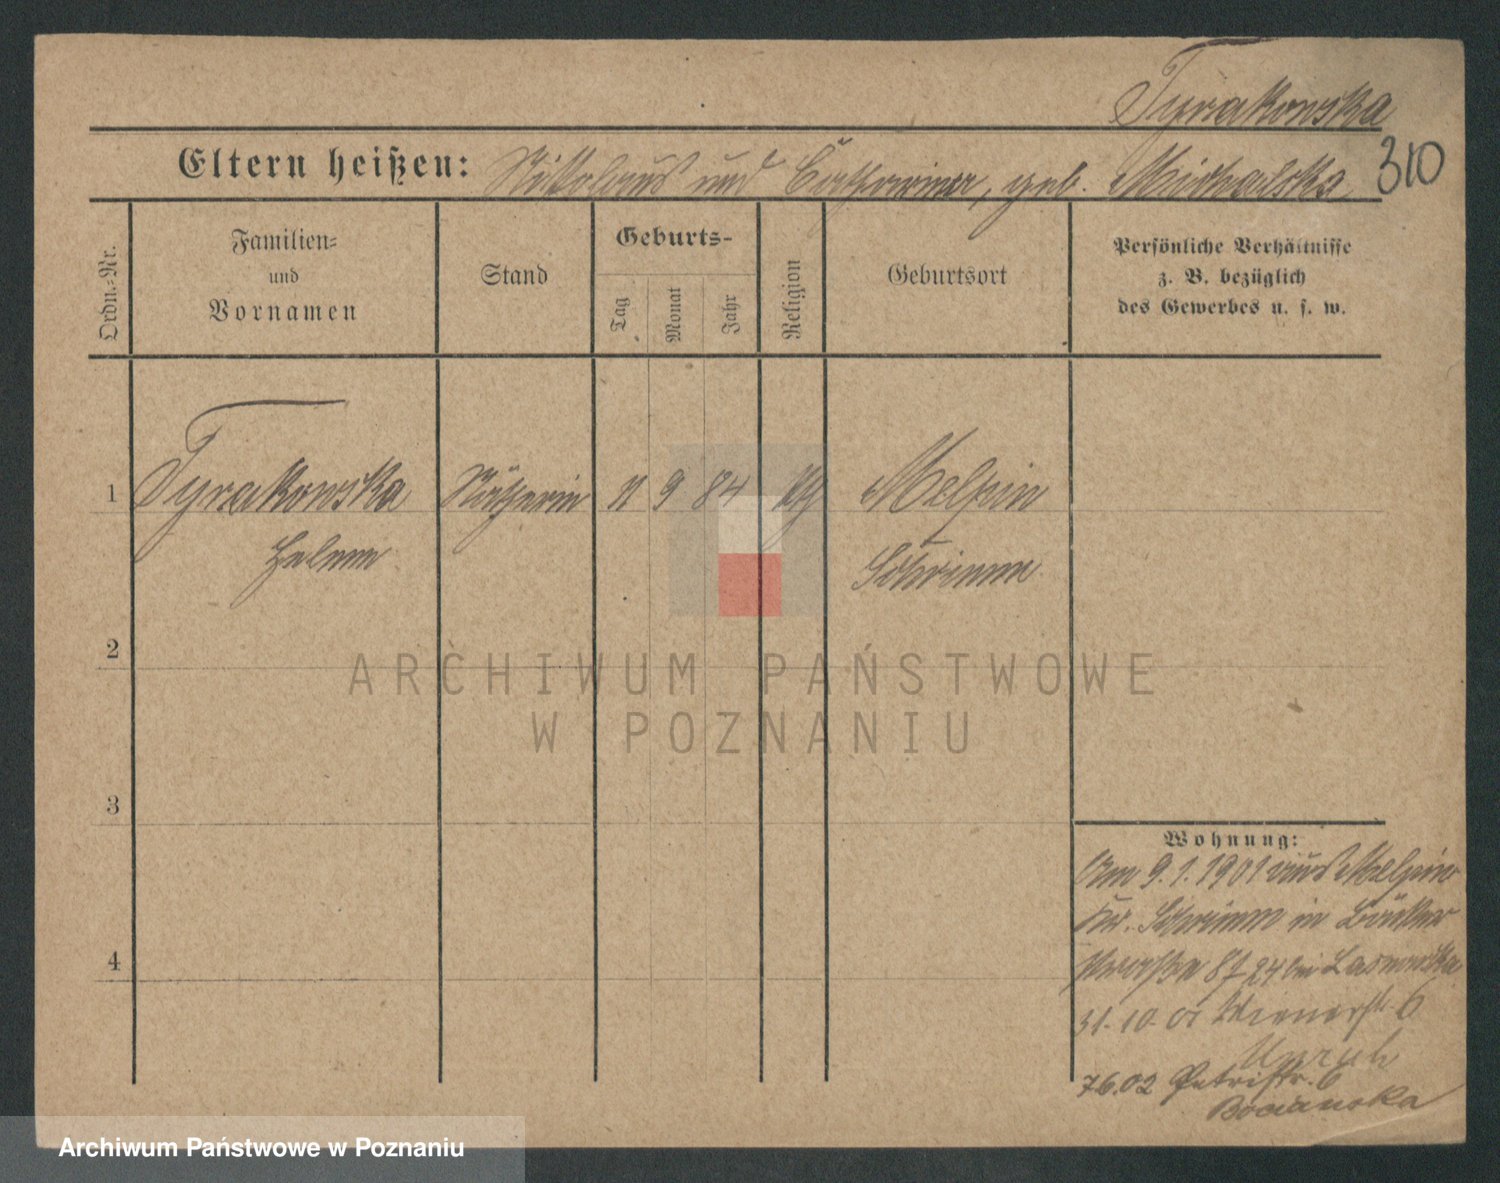 Tyrakowska
310
Eltern heißen: Nikolaus und Catharina, geb. Michalska
Ordn.-Nr.
Familien-
und
Vornamen
Stand
Geburts-
Tag
Monat
Jahr
Religion
Geburtsort
Persönliche Verhältnisse
z. B. bezüglich
des Gewerbes u. s. w.
1 Tyrakowska Näherin 11 9 84 kth Melpin
Helene Schrimm
2
ARCHIWUM PAŃSTWOWE
W POZNANIU
3
Wohnung:
Am 9.1.1901 aus Melpin
Kr. Schrimm in
4
24 bei
31.10.01 Wienerstr. 6
Unruh
7.6.02 Petristr. 6
Bocianska
Archiwum Państwowe w Poznaniu